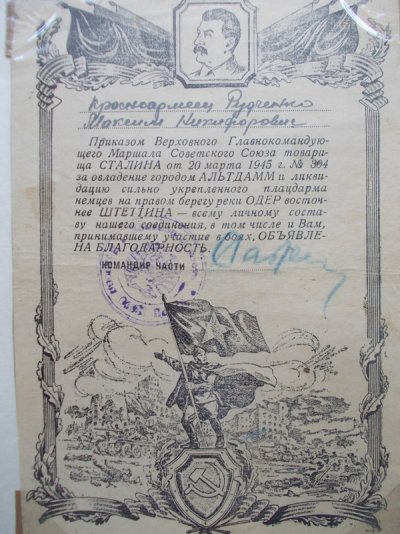 Красноармеец Рудченко
Максим Никифорович
Приказом Верховного Главнокомандую-
щего Маршала Советского Союза товари-
ща СТАЛИНА от 20 марта 1945 г. № 304
за овладение городом АЛЬТДАММ и ликви-
дацию сильно укрепленного плацдарма
немцев на правом берегу реки ОДЕР восточ-
нее ШТЕТТИНА — всему личному соста-
ву нашего соединения, в том числе и Вам,
принимавшему участие в боях, ОБЪЯВЛЕ-
НА БЛАГОДАРНОСТЬ.
КОМАНДИР ЧАСТИ